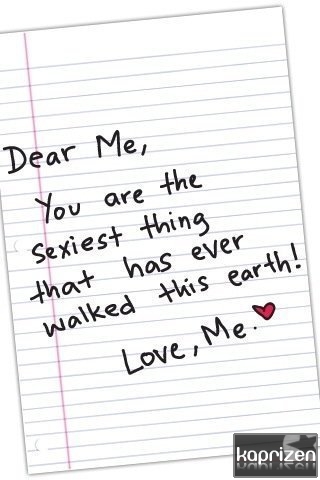 Dear Me,
You are the
sexiest thing
that has ever
walked this earth!
Love, Me.
kaprizen